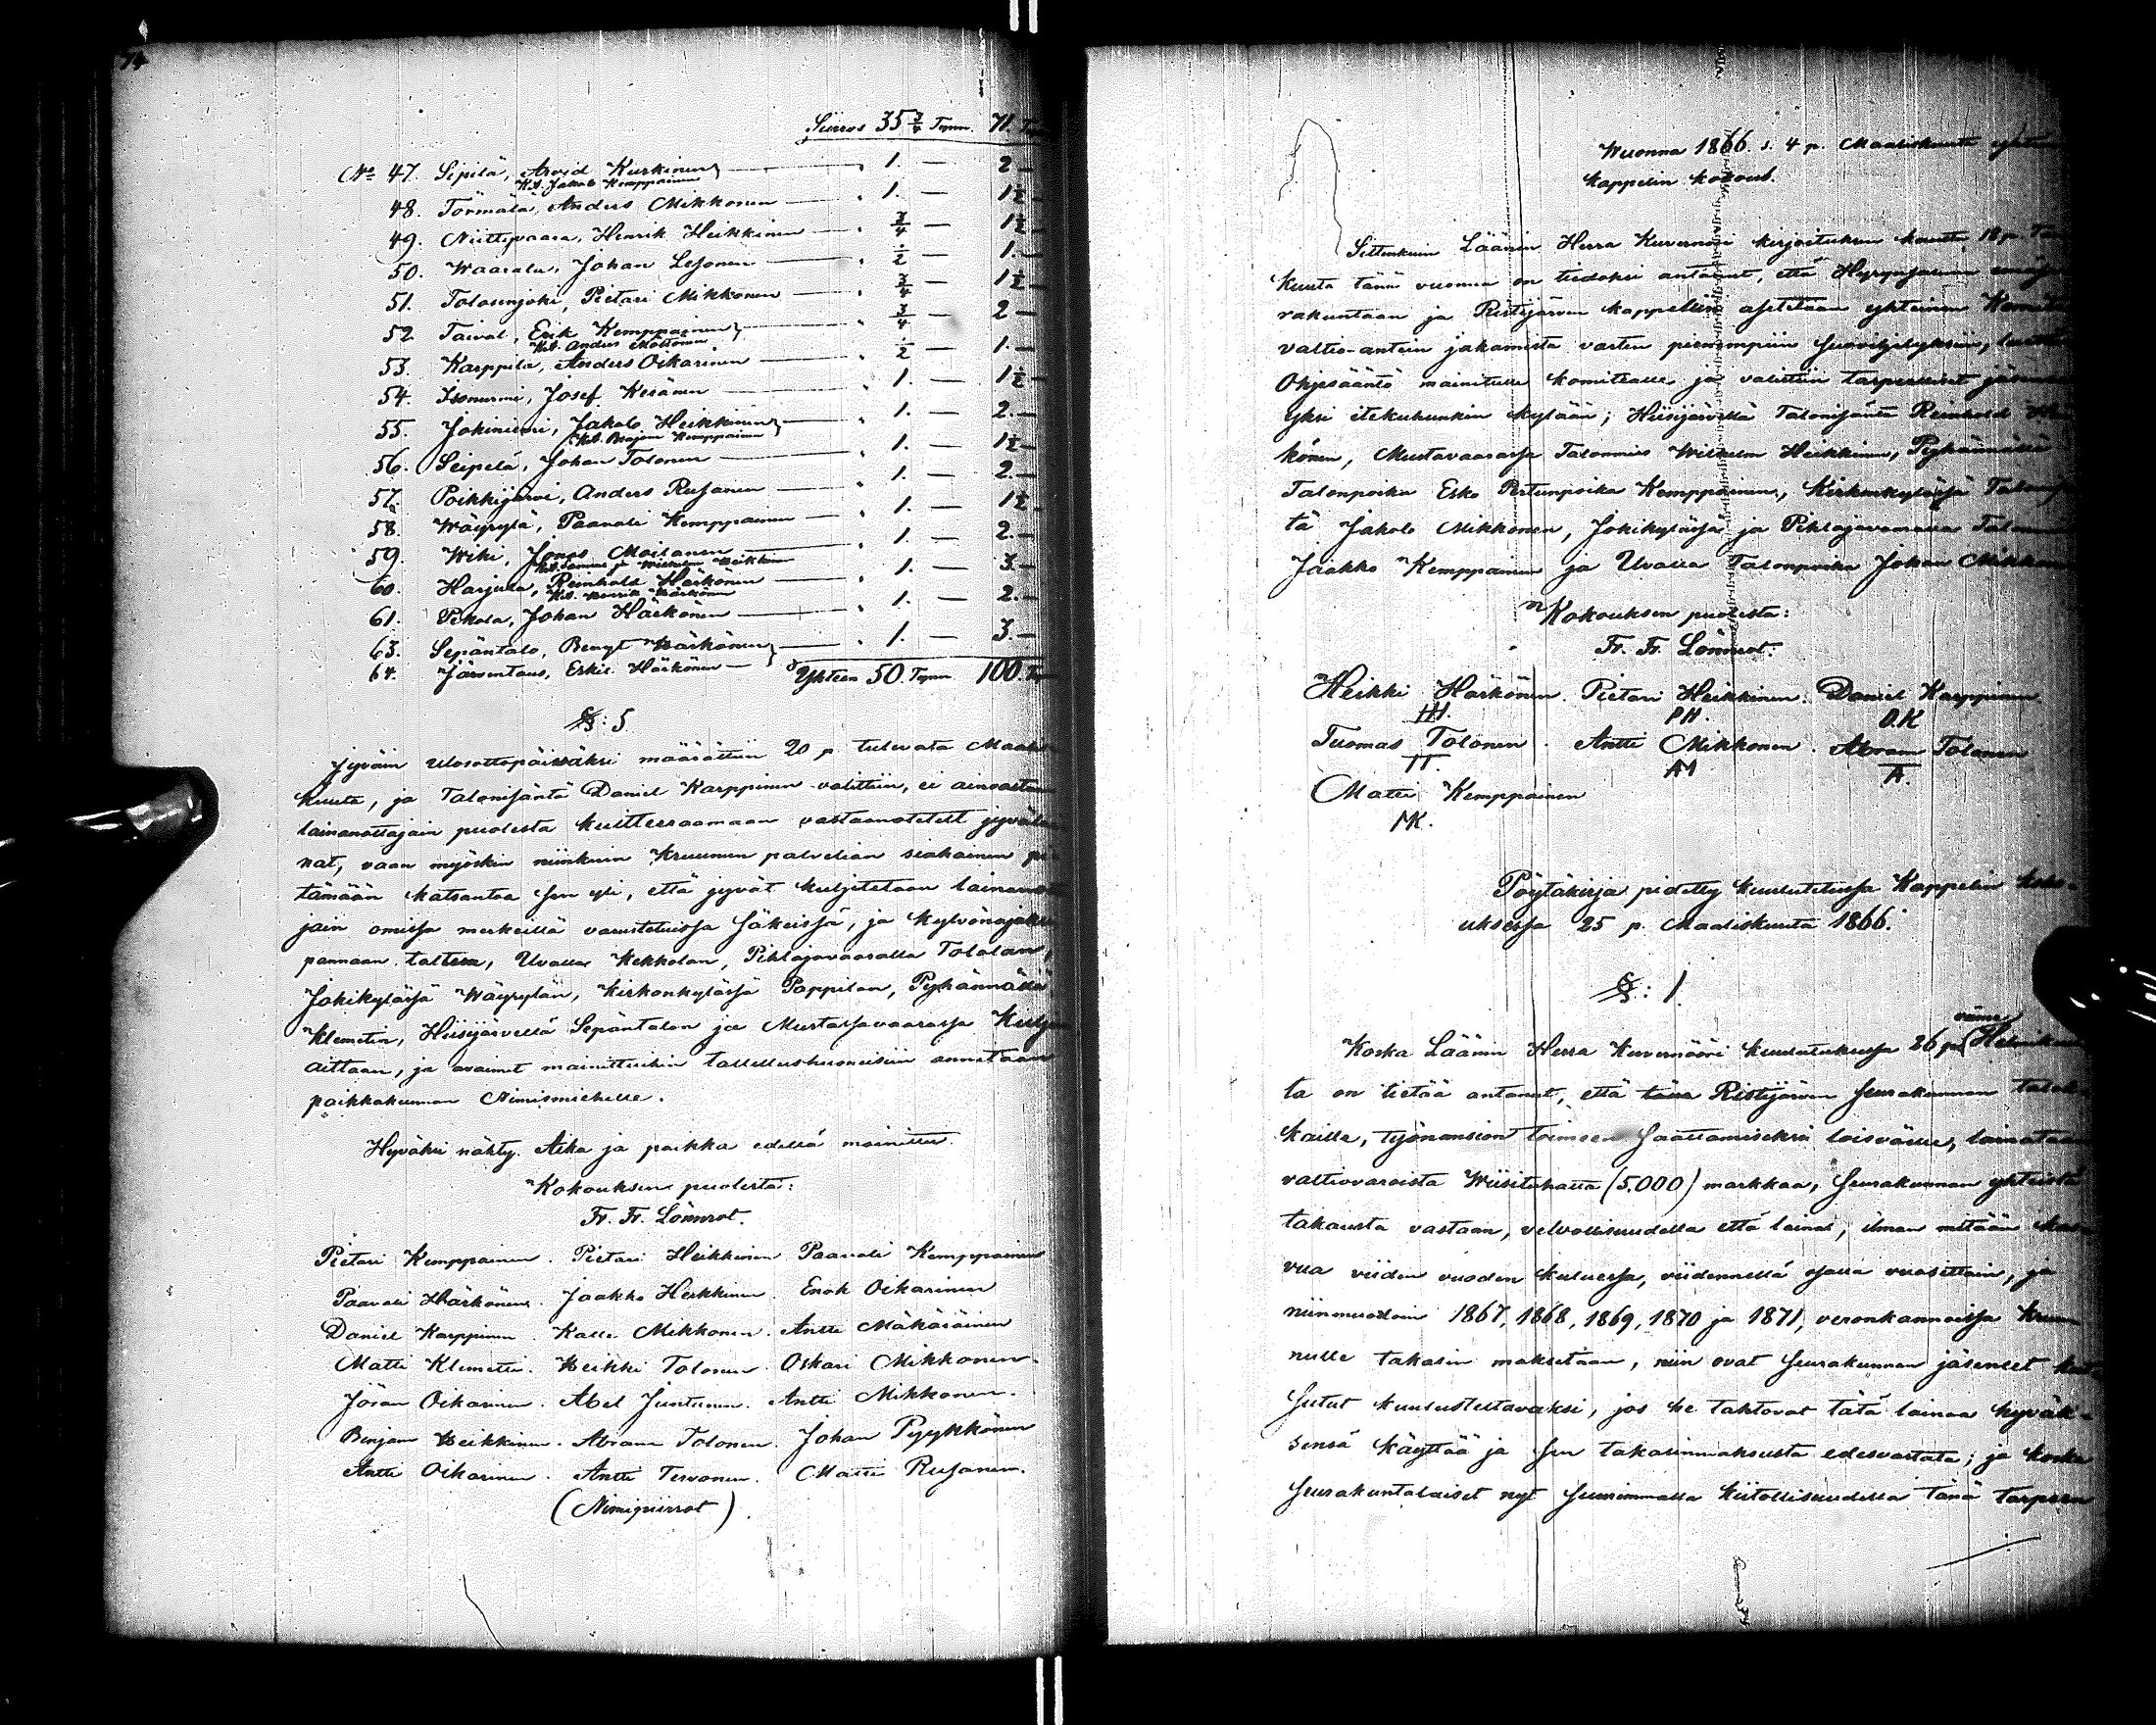 74
Siirros 35 3/4 Tynn. 71.
No 47. Sipilä, Arvid Kurkinen — „ 1. — 2 —
Kt. Jakob Kemppainen
48. Törmälä, Anders Mikkonen — „ 1. — 1 1/2 —
49. Niittyvaara, Henrik Heikkinen — „ 3/4 — 1 1/2 —
50. Waarala, Johan Leinonen — „ 1/2 — 1. —
51. Tolosenjoki, Pietari Mikkonen — „ 3/4 — 1 1/2 —
52 Taival, Erik Kemppainen — „ 3/4 — 2 —
Kt. Anders Möttönen
53. Karppila, Anders Oikarinen — „ 1/2 — 1. —
54. Isonurmi, Josef Keränen — „ 1. — 1 1/2 —
55. Jokiniemi, Jakob Heikkinen — „ 1. — 2. —
Kt. Benjam Kemppainen
56. Seipelä, Johan Tolonen — „ 1. — 1 1/2 —
57. Poikkijärvi, Anders Rusanen — „ 1. — 2. —
58. Wäyrylä, Paavali Kemppainen — „ 1. — 1 1/2
59. Wiki, Jonas Moilanen — „ 1. — 2. —
60. Harjula, Reinhold Härkönen — „ 1. — 3 —
Kt. Henrik Härkönen
61. Pekola, Johan Härkönen — „ 1. — 2. —
63. Sepäntalo, Bengt Härkönen — „ 1. — 3. —
64. Järventaus, Eskil Härkönen —
Yhteen 50. Tynn 100.
§: 5
Jyväin ulosottopäiväksi määrättiin 20 p. tulevata Maalis
kuuta, ja Talonisäntä Daniel Karppinen valittiin, ei ainoastaan
lainanottajain puolesta kuitteeraamaan vastaanotetut jyvälai
nat, vaan myöskin niinkuin Kruunun palvelian siahainen pi
tämään katsantoa sen yli, että jyvät kuljetetaan lainanot
jain omissa merkeillä varustetuissa säkeissä, ja kylvönajaksi
pannaan talteen, Uvalla Kekkolan, Pihlajavaaralla Tololan,
Jokikylässä Wäyrylän, Kirkonkylässä Pappilan, Pyhännällä
Klemetin, Hiisijärvellä Sepäntalon ja Mustassavaarassa
aittaan, ja avaimet mainittuihin tallellushuoneisiin annetaan
paikkakunnan Nimismiehelle.
Hyväksi nähty. Aika ja paikka edellä mainittu.
Kokouksen puolesta:
Fr. Fr. Lönnrot.
Pietari Kemppainen. Pietari Heikkinen Paavali Kemppainen
Paavali Härkönen. Jaakko Heikkinen. Enok Oikarinen
Daniel Karppinen. Kalle Mikkonen. Antti Mäkäräinen
Matti Klemetti. Heikki Tolonen. Oskari Mikkonen.
Jöran Oikarinen. Abel Juntunen. Antti Mikkonen.
Benjam Heikkinen. Abram Tolonen. Johan Pyykkönen
Antti Oikarinen. Antti Tervonen. Matti Rusanen.
(Nimipiirrot).
Wuonna 1866 s. 4 p. Maaliskuuta
kappelin kokous.
Sittenkuin Läänin Herra Kuvernööri kirjoituksen kautta, 18 p.
kuuta tänä vuonna on tiedoksi antanut, että Hyrynsalmen
rakuntaan ja Ristijärven kappeliin asetetaan yhteinen
valtio-antein jakamista varten pienempiin suoviljelyksiin,
Ohjesääntö mainitulle komitealle ja valittiin tarpeelliset
yksi itsekuhunkin kylään; Hiisijärvellä Talonisäntä Reinhold
könen, Mustavaarassa Talonmies Wilhelm Heikkinen, Pyhännällä
Talonpoika Esko Pertunpoika Kemppainen, Kirkonkylässä
tä Jakob Mikkonen, Jokikylässä ja Pihlajavaaralla
Jaakko Kemppainen ja Uvalla Talonpoika Johan Mikkonen
Kokouksen puolesta:
Fr. Fr. Lönnrot.
Heikki Härkönen. Pietari Heikkinen. Daniel Karppinen
HH. PH. D.K
Tuomas Tolonen. Antti Mikkonen. Abram Tolonen
TT. AM A.
Matti Kemppainen
MK.
Pöytäkirja pidetty kuulutetussa Kappelin koko-
uksessa 25 p. Maaliskuuta 1866.
§: 1.
viime
Koska Läänin Herra Kuvernööri kuulutuksessa 26 p.
ta on tietää antanut, että tässä Ristijärven seurakunnan
kaille, työnansion toimeen saattamiseksi loisväelle, lainataan
valtiovaroista Wiisituhatta (5.000) markkaa, seurakunnan yhteistä
takausta vastaan, velvollisuudella että lainat, ilman mitään
vua viiden vuoden kuluessa, viidennellä osalla vuosittain, ja
niinmuodoin 1867, 1868, 1869, 1870 ja 1871, veronkannoissa Kruu
nulle takasin maksetaan, niin ovat seurakunnan jäsenet kut
sutut kuulusteltavaksi, jos he tahtovat tätä lainaa hyväk-
sensä käyttää ja sen takasinmaksusta edesvastata; ja koska
seurakuntalaiset nyt suurimmalla kiitollisuudella tänä tarpeen